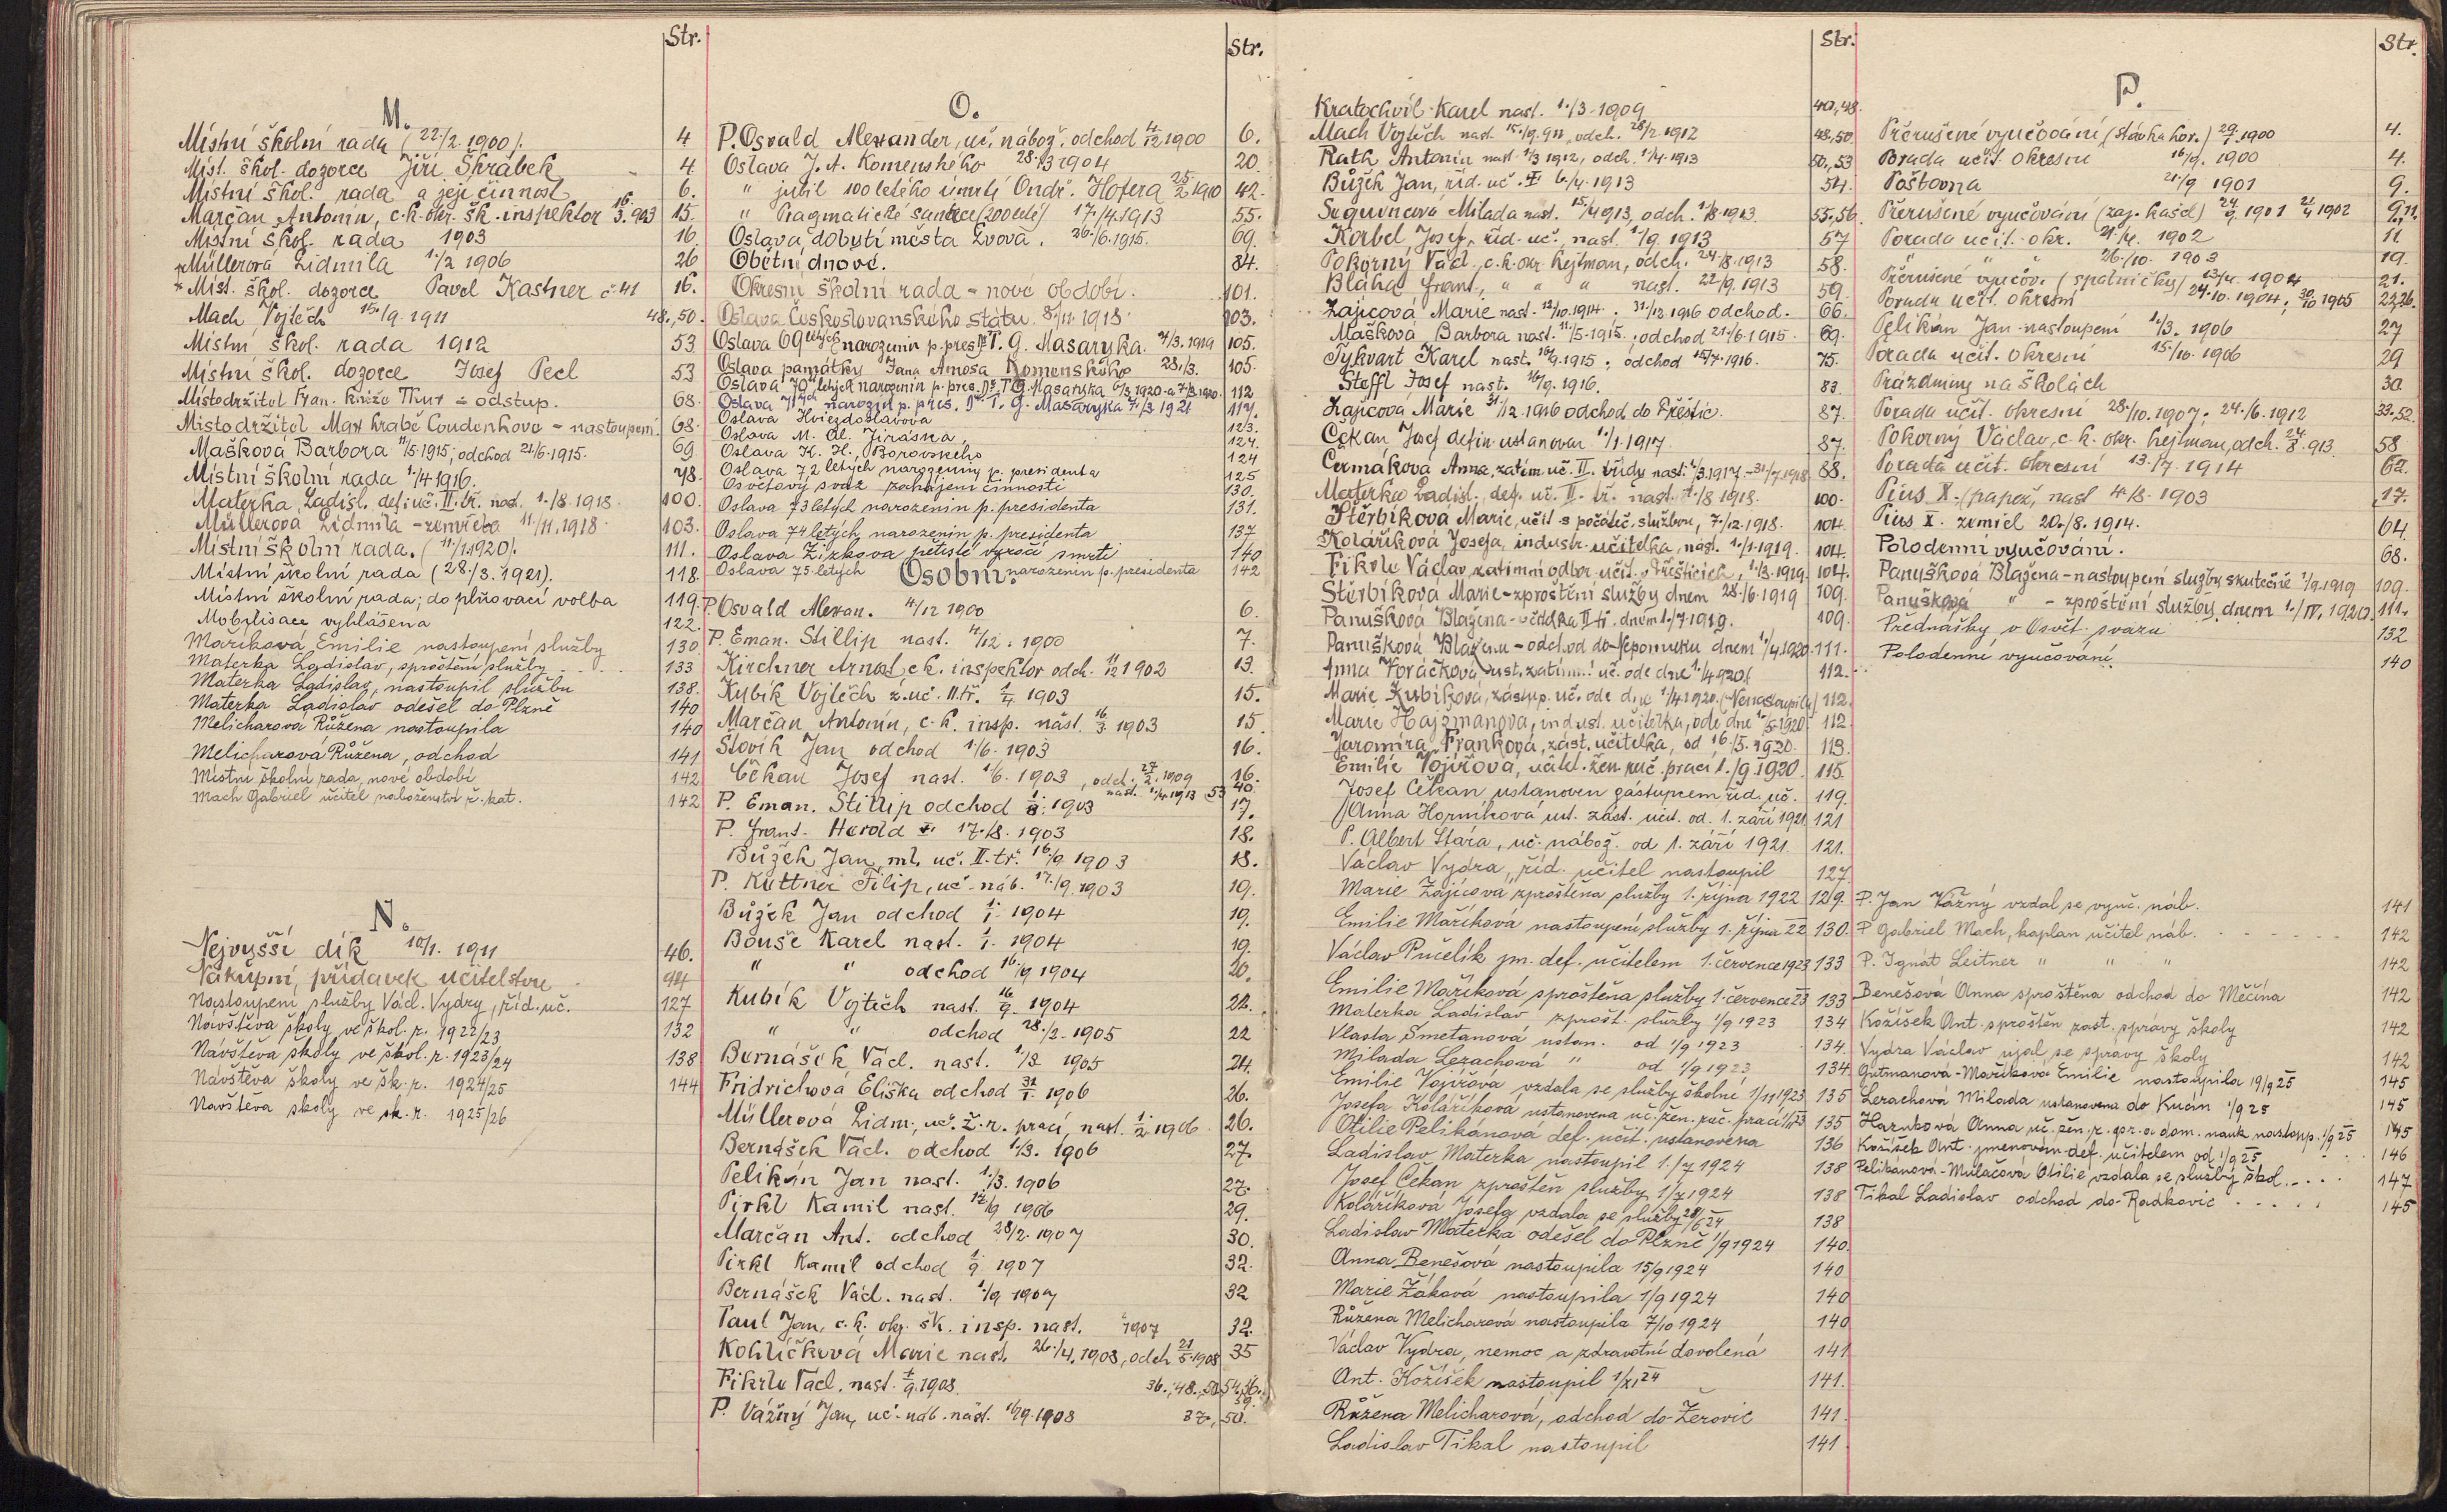 Str.
M.
Místní školní rada (22./2. 1900). 4
Míst. škol. dozorce Jiří Škrábek 4.
Místní škol. rada a její činnost 6.
Marčan Antonín, c.k. okr. šk. inspektor 16./3. 903 15.
Místní škol. rada 1903 16.
Müllerová Lidmila 1./2 1906 26
Míst. škol. dozorce Pavel Kastner č. 41 16.
Mach Vojtěch 15./9. 1911 48., 50.
Místní škol. rada 1912 53
Místní škol. dozorce Josef Pecl 53
Místodržitel Fran. kníže Thun - odstup. 68.
Místodržitel Max hrabě Coudenhove - nastoupení. 68.
Mašková Barbora 11/5. 1915; odchod 21/6. 1915. 69.
Místní školní rada 1./4 1916. 78.
Materka Ladisl. def. uč. II. tř. nast. 1./8. 1918. 100.
Müllerova Lidmila - zemřela 11./11. 1918. 103.
Místní školní rada. (11./1. 1920). 111.
Místní školní rada (28./3. 1921). 118.
Místní školní rada; doplňovací volba 119.
Mobilisace vyhlášena 122.
Maříková Emilie nastoupení služby 130
Materka Ladislav, sproštění služby 133
Materka Ladislav, nastoupil službu 138.
Materka Ladislav odešel do Plzně 140
Melicharová Růžena nastoupila 140
Melicharová Růžena, odchod 141
Místní školní rada, nové období 142
Mach Gabriel učitel náboženství ř. kat. 142
N.
Nejvyšší dík 10/1. 1911 46.
Nákupní přídavek učitelstvu 94
Nastoupení služby Václ. Vydry, říd. uč. 127
Návštěva školy ve škol. r. 1922/23 132
Návštěva školy ve škol. r. 1923/24 138
Návštěva školy ve šk. r. 1924/25 144
Návštěva školy ve šk. r. 1925/26
Str.
O.
P. Osvald Alexander, uč. nábož. odchod 4./12 1900 6.
Oslava J. A. Komenského 28./3 1904 20.
" jubil 100 letého úmrtí Ondř. Hofera 25./2. 1910 42.
" Pragmatické sankce (200 leté) 17./4. 1913 55.
Oslava dobytí města Lvova. 26./6. 1915. 69.
Obětní dnové. 84.
Okresní školní rada - nové období. 101.
Oslava Československého státu. 8./11. 1918. 103.
Oslava 69 letých narozenin p. pres. Dr. T. G. Masaryka. 7/3. 1919 105.
Oslava památky Jana Amosa Komenského 28./3. 105.
Oslava 70 letých narozenin p. pres. Dr. T. G. Masaryka 6/3. 1920. a 7/3. 1920. 112
Oslava 71 narozin p. pres. Dr. T. G. Masaryka 7./3. 1921 117.
Oslava Hviezdoslavova 123.
Oslava M. Al. Jiráska, 124.
Oslava K. H. Borovského 124
Oslava 72 letých narozeniny p. presidenta 125
Osvětový svaz zahájení činnosti 130.
Oslava 73 letých narozenin p. presidenta 131.
Oslava 74 letých narozenin p. presidenta 137
Oslava Žižkova pětisté výročí smrti 140
Oslava 75 letých narozenin p. presidenta 142
Osobní.
P. Osvald Alexan. 4/12 1900 6.
P. Eman. Stillip nast. 4/12. 1900 7.
Kirchner Arnošt, c.k. inspektor odch. 11/12 1902 13.
Kubík Vojtěch z. uč. II. tř. 1./4. 1903 15.
Marčan Antonín, c. k. insp. nást. 16/3. 1903 15
Šlovík Jan odchod 1./6. 1903 16.
Čekan Josef nast. 1/6. 1903, odch. 27/2. 1909 16.
nast. 1./4. 1913 53 40.
P. Eman. Stillip odchod 1./8. 1903 17.
P. Frant. Herold † 17./8. 1903 18.
Bůžek Jan, ml. uč. II. tř. 16./9 1903 18.
P. Küttner Filip, uč. náb. 17./9. 1903 19.
Bůžek Jan odchod 1./1. 1904 19.
Bouše Karel nast. 1./1. 1904 19.
" " odchod 16./9 1904 20.
Kubík Vojtěch nast. 16./9. 1904 22.
" " odchod 28./2. 1905 22
Bernášek Václ. nast. 1./3 1905 24.
Fridrichová Eliška odchod 31/1. 1906 26.
Müllerová Lidm., uč. ž. r. prací, nast. 1./2. 1906 26.
Bernášek Václ. odchod 1./3. 1906 27.
Pelikán Jan nast. 1./3. 1906 27.
Pirkl Kamil nast. 17/9 1906 29.
Marčan Ant. odchod 28/2. 1907 30.
Pirkl Kamil odchod 1./9. 1907 32.
Bernášek Václ. nast. 1./9 1907 32
Paul Jan, c.k. okr. šk. insp. nast. 1907 32.
Kohlíčková Marie nast. 26./4. 1908, odch 21/5. 1908 35
Fikrle Václ. nast. 1./9. 1908. 36., 48., 50, 54, 56.
P. Vážný Jan, uč. náb. nást. 16/9. 1908 37, 50. 39.
Str.
Kratochvíl Karel nast. 1./3. 1909 40, 48.
Mach Vojtěch nast 15./9. 911, odch. 28/2. 1912 48, 50.
Rath Antonín nast. 1/3 1912, odch. 1/4. 1913 50, 53
Bůžek Jan, říd. uč. † 6./4. 1913 54.
Milada nast. 15/4 913, odch. 1/8. 1913. 55, 56.
Korbel Josef, říd. uč., nast. 1/9. 1913 57
Pokorný Václ., c.k. okr. hejtman, odch. 24./8. 1913 58.
Bláha Frant., " " " nast. 22/9. 1913 59.
Zajícová Marie nast. 12/10. 1914. 31/12. 1916 odchod. 66.
Mašková Barbora nast. 11/5. 1915. ; odchod 21./6. 1915. 69.
Sykvart Karel nast. 16/9. 1915; odchod 15/7. 1916. 75.
Steffl Josef nast. 16/9. 1916. 83.
Zajícová Marie 31/12. 1916 odchod do Přeštic. 87.
Čekan Josef defin. ustanoven 1./1. 1917. 87.
Čermáková Anna, zatím. uč. II. třídy nast. 1/3. 1917. - 31/7. 1918. 88.
Materka Ladisl., def. uč. II. tř. nast. 1./8 1918. 100.
Štěrbíková Marie, učit. s počáteč. službou, 7./12. 1918. 104.
Koláříková Josefa, industr. učitelka, nást. 1./1. 1919. 104.
Fikrle Václav, zatímní odbor. učit. v Přešticích, 1./3. 1919. 104.
Štěrbíková Marie - zproštění služby dnem 28./6. 1919 109.
Panušková Blažena - učitelka II. tř. dnem 1./7. 1919. 109.
Panušková Blažena - odchod do Nepomuku dnem 1./4. 1920. 111.
Anna Voráčková ust. zatímní uč. ode dne 1./4 920. 112.
Marie Kubíková, zástup. uč. ode dne 1/4. 1920. (Nenastoupila) 112.
Marie Hajšmanová, indust. učitelka, ode dne 1./5. 1920. 112
Jaromíra Franková, zást. učitelka, od 16./5. 1920. 113.
Emilie Vojířová, učitel. žen. ruč. prací 1./9. 1920. 115.
Josef Čekan ustanoven zástupcem říd. uč. 119.
Anna Horníková ust. zást. učit. od. 1. září 1921. 121
P. Albert Stára, uč. nábož. od 1. září 1921. 121.
Václav Vydra, říd. učitel nastoupil 127.
Marie Zajícová zproštěna služby 1. října 1922 129.
Emilie Maříková nastoupení služby 1. října 22 130.
Václav Pučelík jm. def. učitelem 1. července 1923 133
Emilie Maříková sproštěna služby 1. července 23 133
Materka Ladislav zprošt. služby 1/9 1923 134
Vlasta Smetanová ustan. od 1/9 1923 134.
Milada Lerachová " od 1/9 1923 134.
Emilie Vojířova vzdala se služby školní 1/11 1923 135
Josefa Koláříková ustanovena uč. žen. ruč. prací 1/11 23 135
Otilie Pelikánová def. učit. ustanovena 136
Ladislav Materka nastoupil 1./7 1924 138
Josef Čekan zproštěn služby 1/7 1924 138
Koláříková Josefa vzdala se služby 28/6 24 138
Ladislav Materka odešel do Plzně 1/9 1924 140.
Anna Benešová nastoupila 15/9 1924 140
Marie Žáková nastoupila 1/9 1924 140
Růžena Melicharová nastoupila 7/10 1924 140
Václav Vydra, nemoc a zdravotní dovolená 141
Ant. Kožíšek nastoupil 1/XI 24 141.
Růžena Melicharová, odchod do Žerovic 141.
Ladislav Tikal nastoupil 141.
Str.
P.
Přerušené vyučování (stávka hor.) 29./1. 1900 4.
Porada učit. okresní 16/9. 1900 4.
Poštovna 21./9 1901 9.
Přerušené vyučování (zaj. kašel) 24/9. 1901 21/4 1902 9, 11.
Porada učit. okr. 21./4. 1902 11
" " " 26./10. 1903 19.
Přerušené vyučov. (spalničky) 13/4. 1904 21.
Porada učit. okresní 24. 10. 1904; 30/10 1905 22, 26.
Pelikán Jan nastoupení 1./3. 1906 27
Porada učit. okresní 15./10. 1906 29
Prázdniny na školách 30
Porada učit. okresní 28./10. 1907; 24./6. 1912 33. 52.
Pokorný Václav, c. k. okr. hejtman, odch. 24/8. 913. 58
Porada učit. okresní 13./7. 1914 62.
Pius X. (papež) nast 4./8. 1903 17.
Pius X. zemřel 20./8. 1914. 64.
Polodenní vyučování. 68.
Panušková Blažena - nastoupení služby skutečné 1/9. 1919 109.
Panušková " - zproštění služby dnem 1./IV. 1920. 111.
Přednášky v Osvět. svazu 132
Polodenní vyučování. 140
P. Jan Vážný vzdal se vyuč. náb. 141
P Gabriel Mach, kaplan učitel náb. 142
P. Ignát Leitner " " " 142
Benešová Anna sproštěna odchod do Měčína 142
Kožíšek Ant. sproštěn zast. správy školy 142
Vydra Václav ujal se správy školy 142
Gutmanová-Maříková Emilie nastoupila 19/9 25 145
Lerachová Milada ustanovena do Kucín 1/9 25 145
Anna uč. žen. r. pr. a dom. nauk nastoup. 1/9 25 145
Kožíšek Ant. jmenován def. učitelem od 1/9 25 146
Pelikánová-Mulačová Otilie vzdala se služby škol. 147
Tikal Ladislav odchod do Radkovic 145